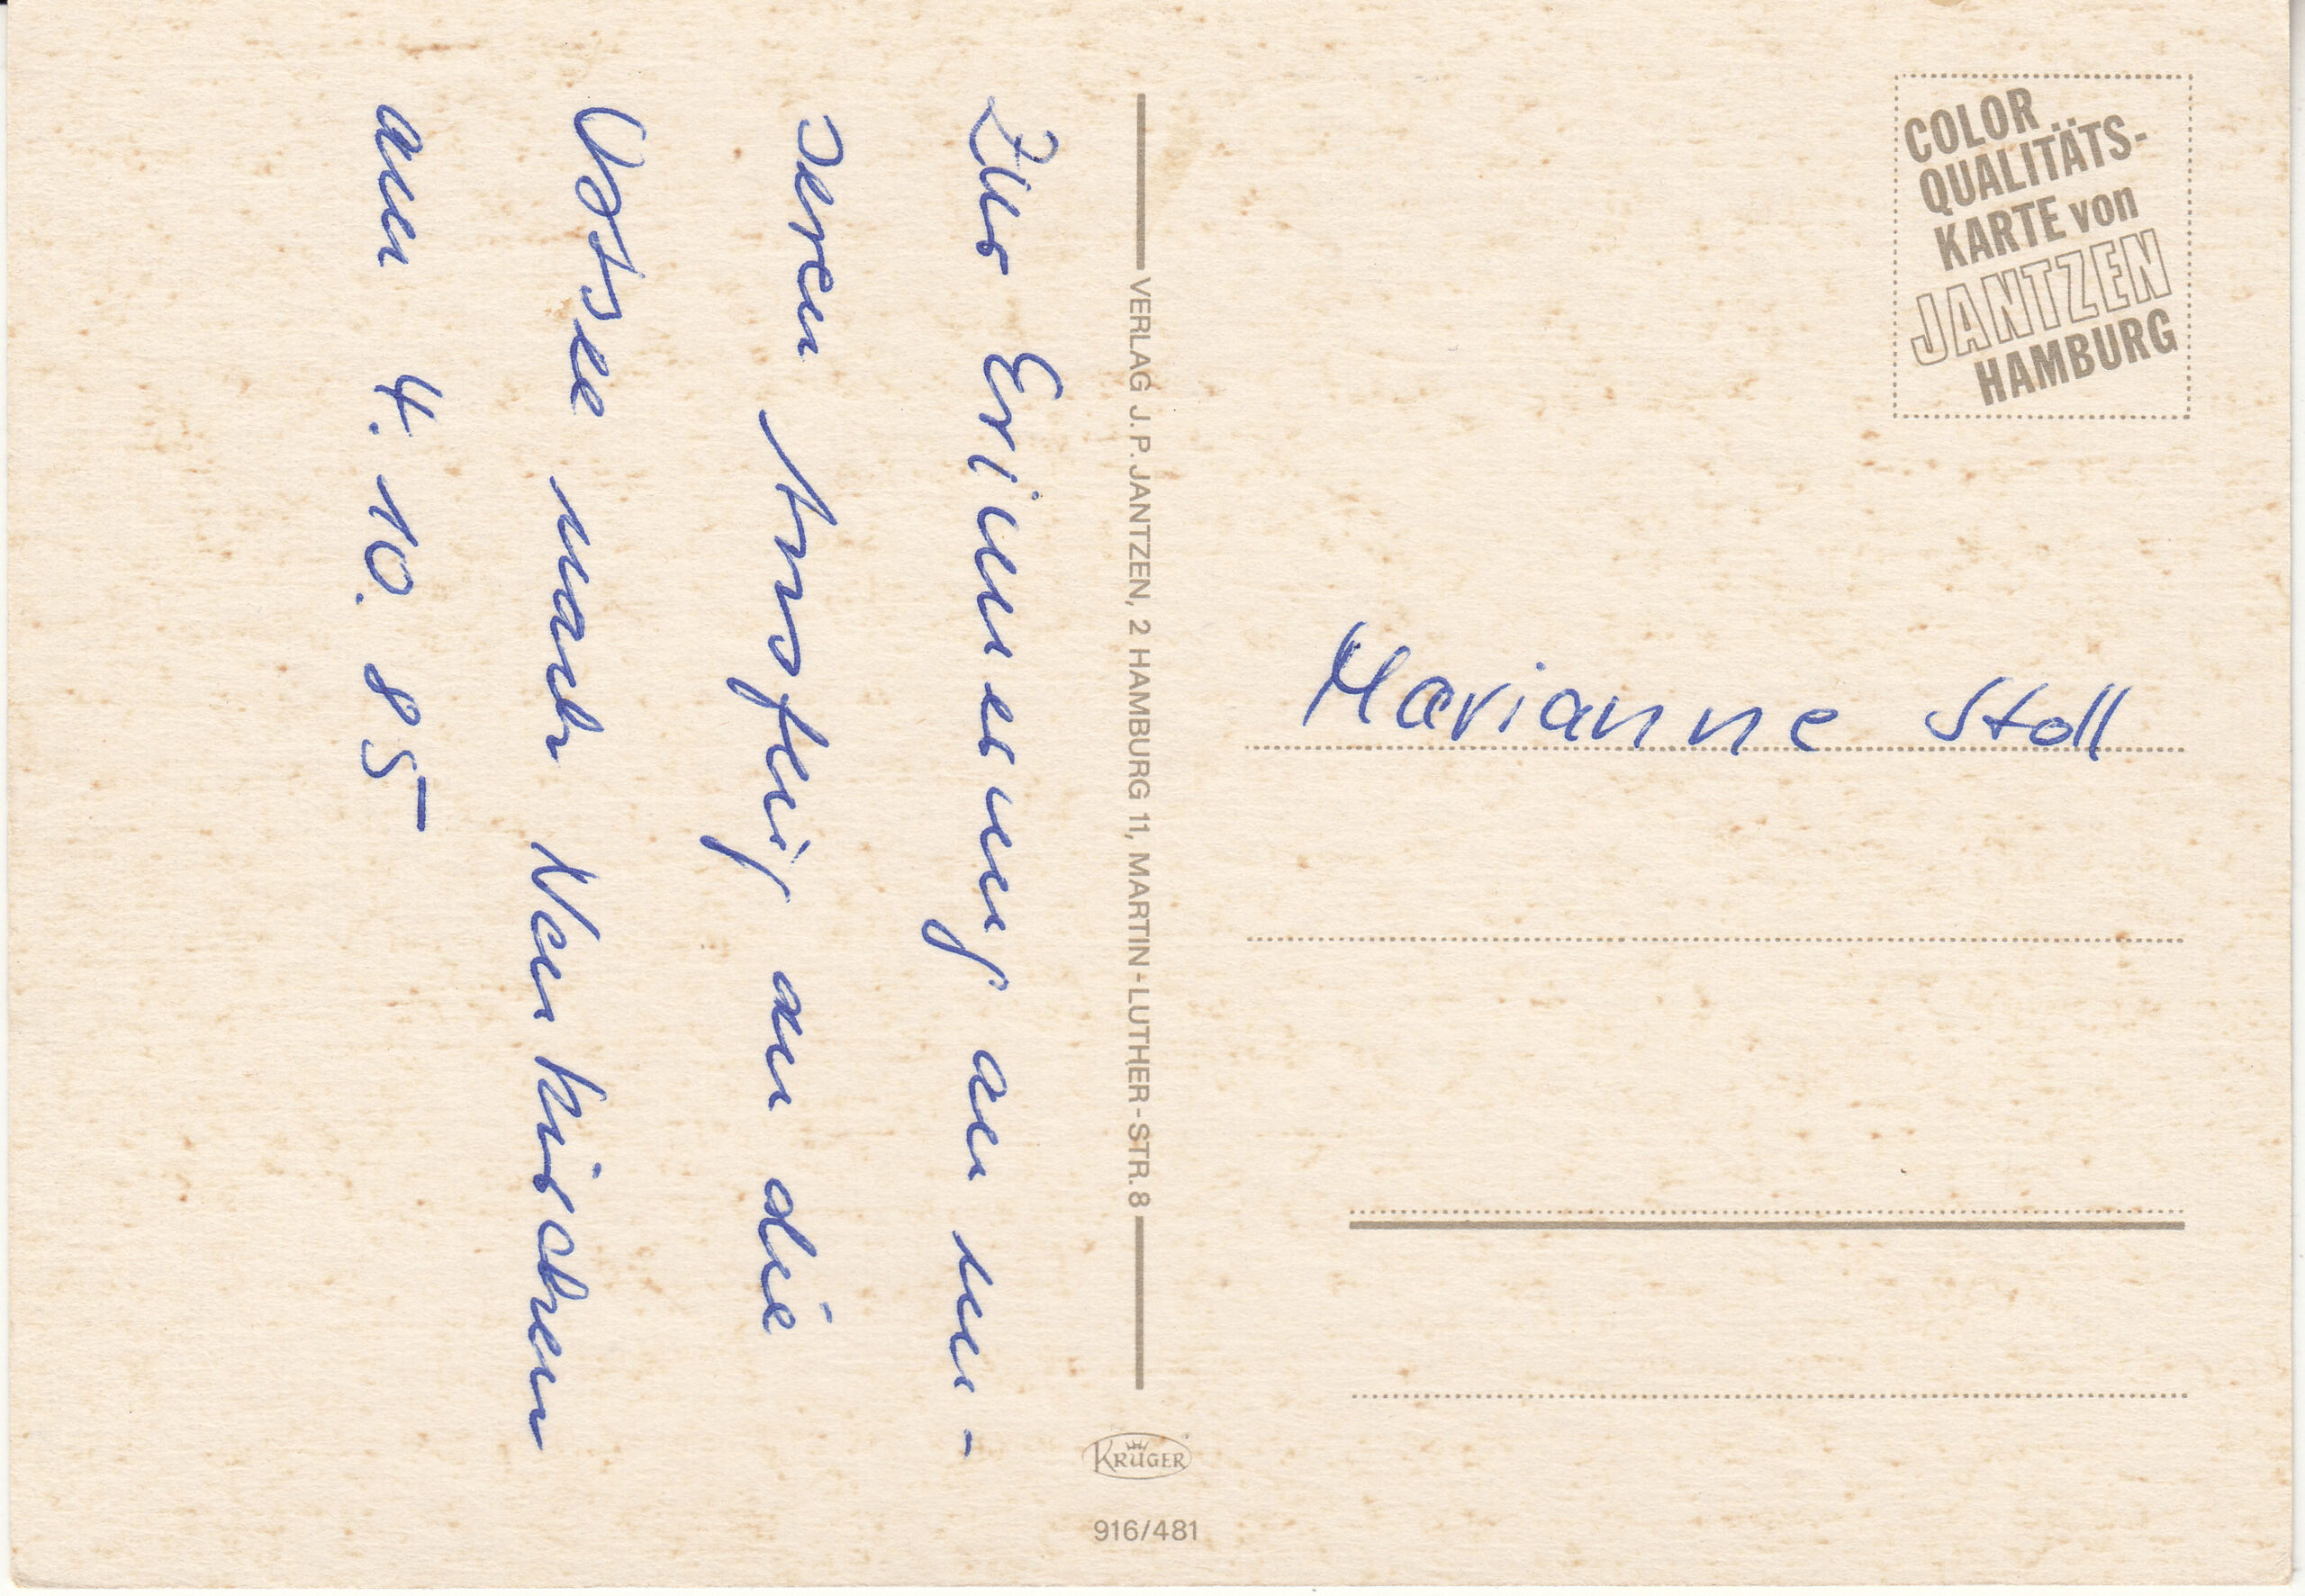 Zur Erinnerung an un-
seren Ausflug an die
Ostsee nach Neukirchen
am 4. 10. 85
VERLAG J. P. JANTZEN, 2 HAMBURG 11, MARTIN-LUTHER-STR. 8
KRÜGER
916/481
COLOR
QUALITÄTS-
KARTE von
JANTZEN
HAMBURG
Marianne Stoll